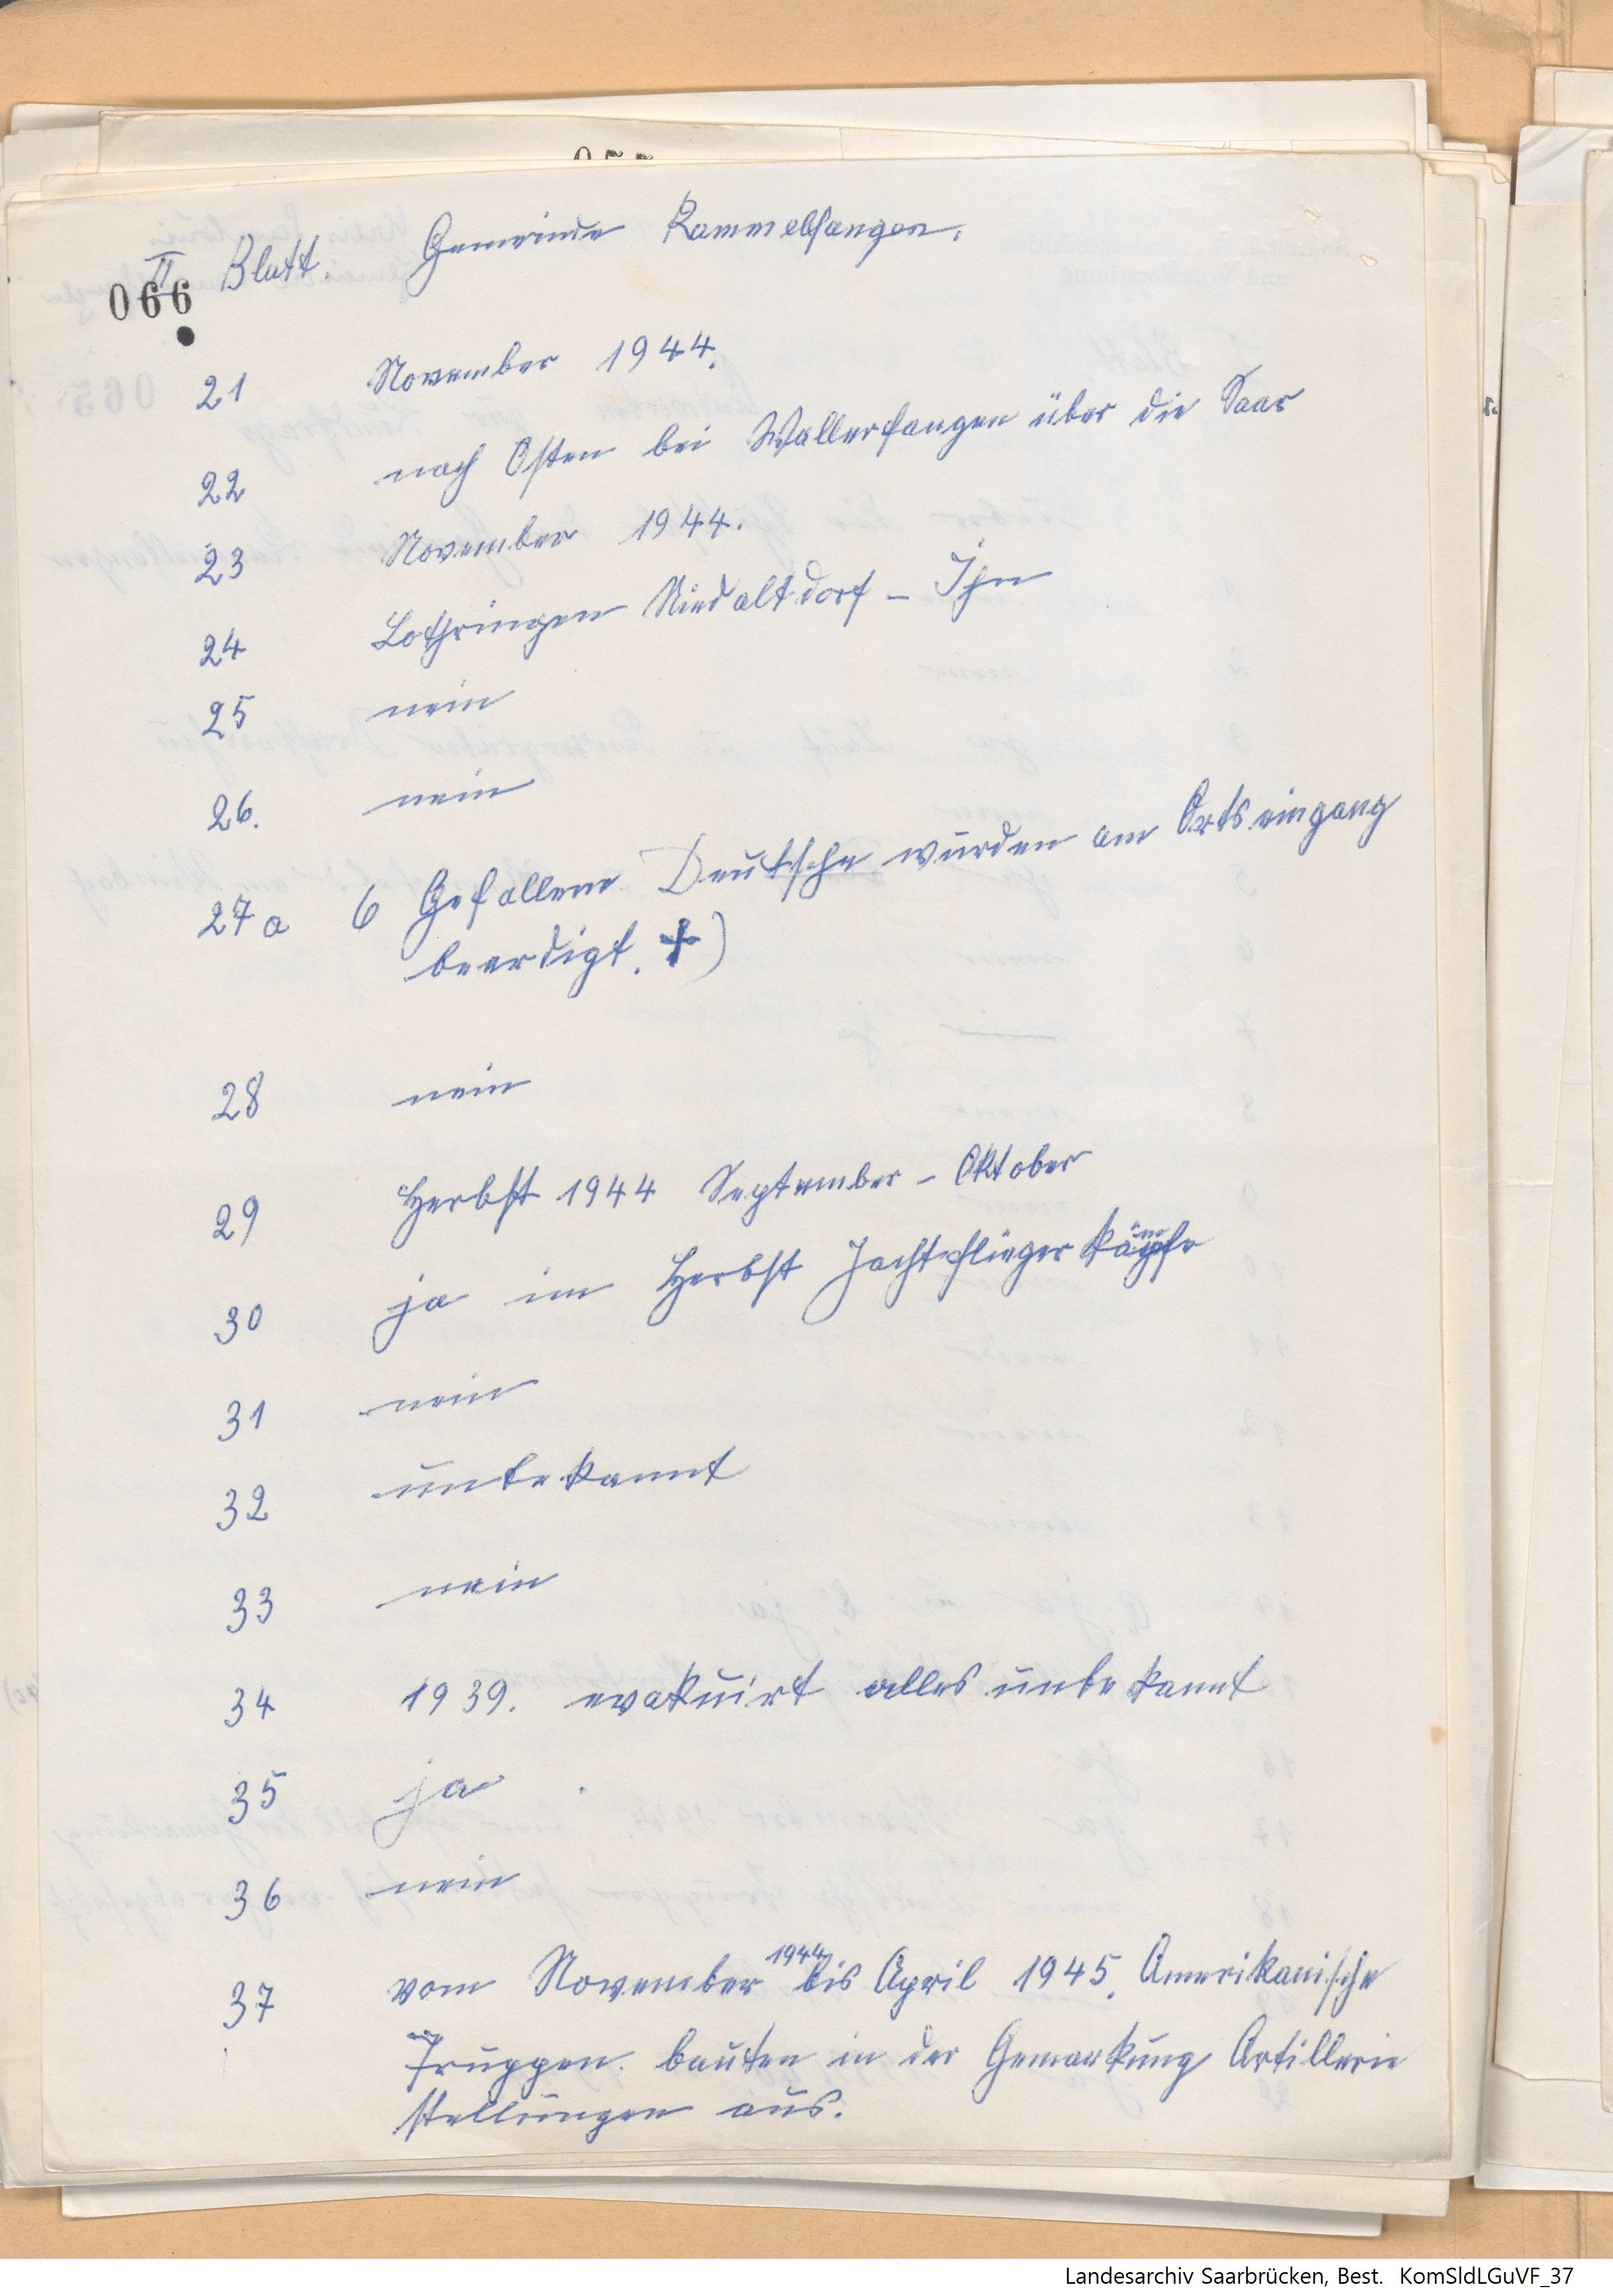 II Blatt. Gemeinde Rammelfangen.
066
21 November 1944.
22 nach Osten bei Wallerfangen über die Saar
23 November 1944.
24 Lothringen Niedaltdorf - Ihn
25 nein
26. nein
27a 6 Gefallene Deutsche wurden am Ortseingang
beerdigt. +)
28 nein
29 Herbst 1944 September - Oktober
30 ja im Herbst Jachtfliegerkämpfe
31 nein
32 unbekannt
33 nein
34 1939. evakuirt alles unbekannt
35 ja
36 nein
37 vom November 1944 bis April 1945. Amerikanische
Truppen bauten in der Gemarkung Artillerie
stellungen aus.
Landesarchiv Saarbrücken, Best. KomSldLGuVF_37